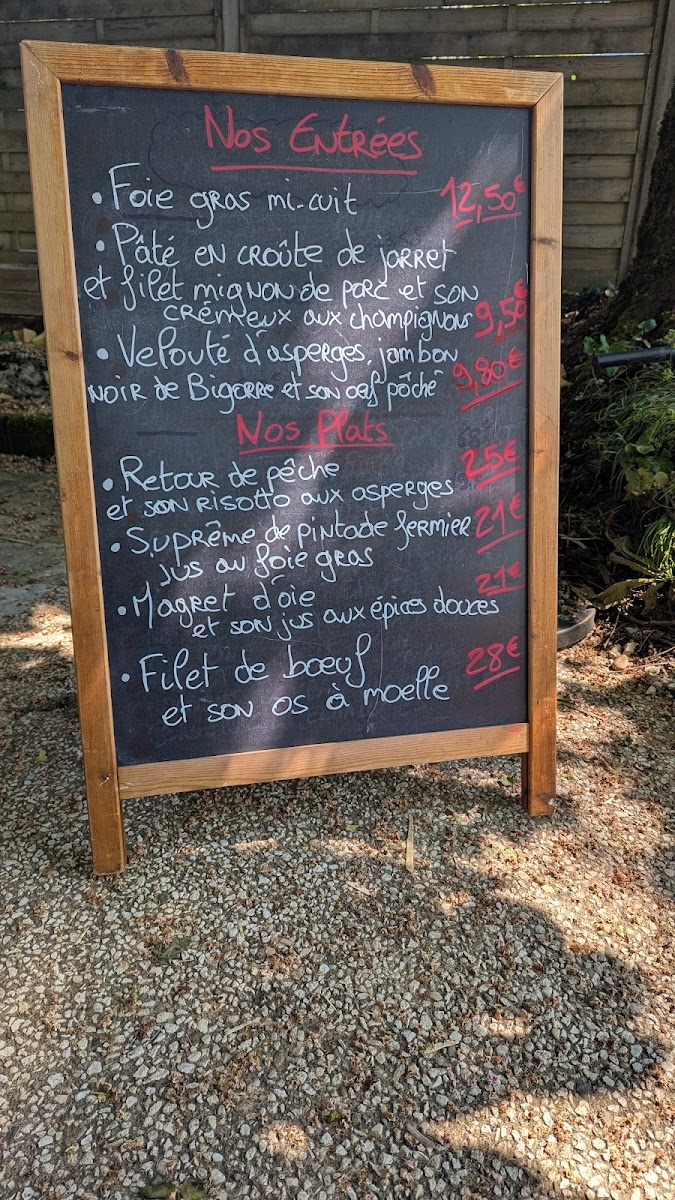 Nos Entrées
• Foie gras mi-cuit 12,50€
• Pâté en croûte de jarret
et filet mignon de porc et son
crémeux aux champignons 9,50€
• Velouté d'asperges, jambon
noir de Bigorre et son œuf pôché 9,80€
Nos Plats
• Retour de pêche 25€
et son risotto aux asperges
• Suprême de pintade fermier 21€
jus au foie gras
• Magret d'oie 21€
et son jus aux épices douces
• Filet de bœuf 28€
et son os à moelle